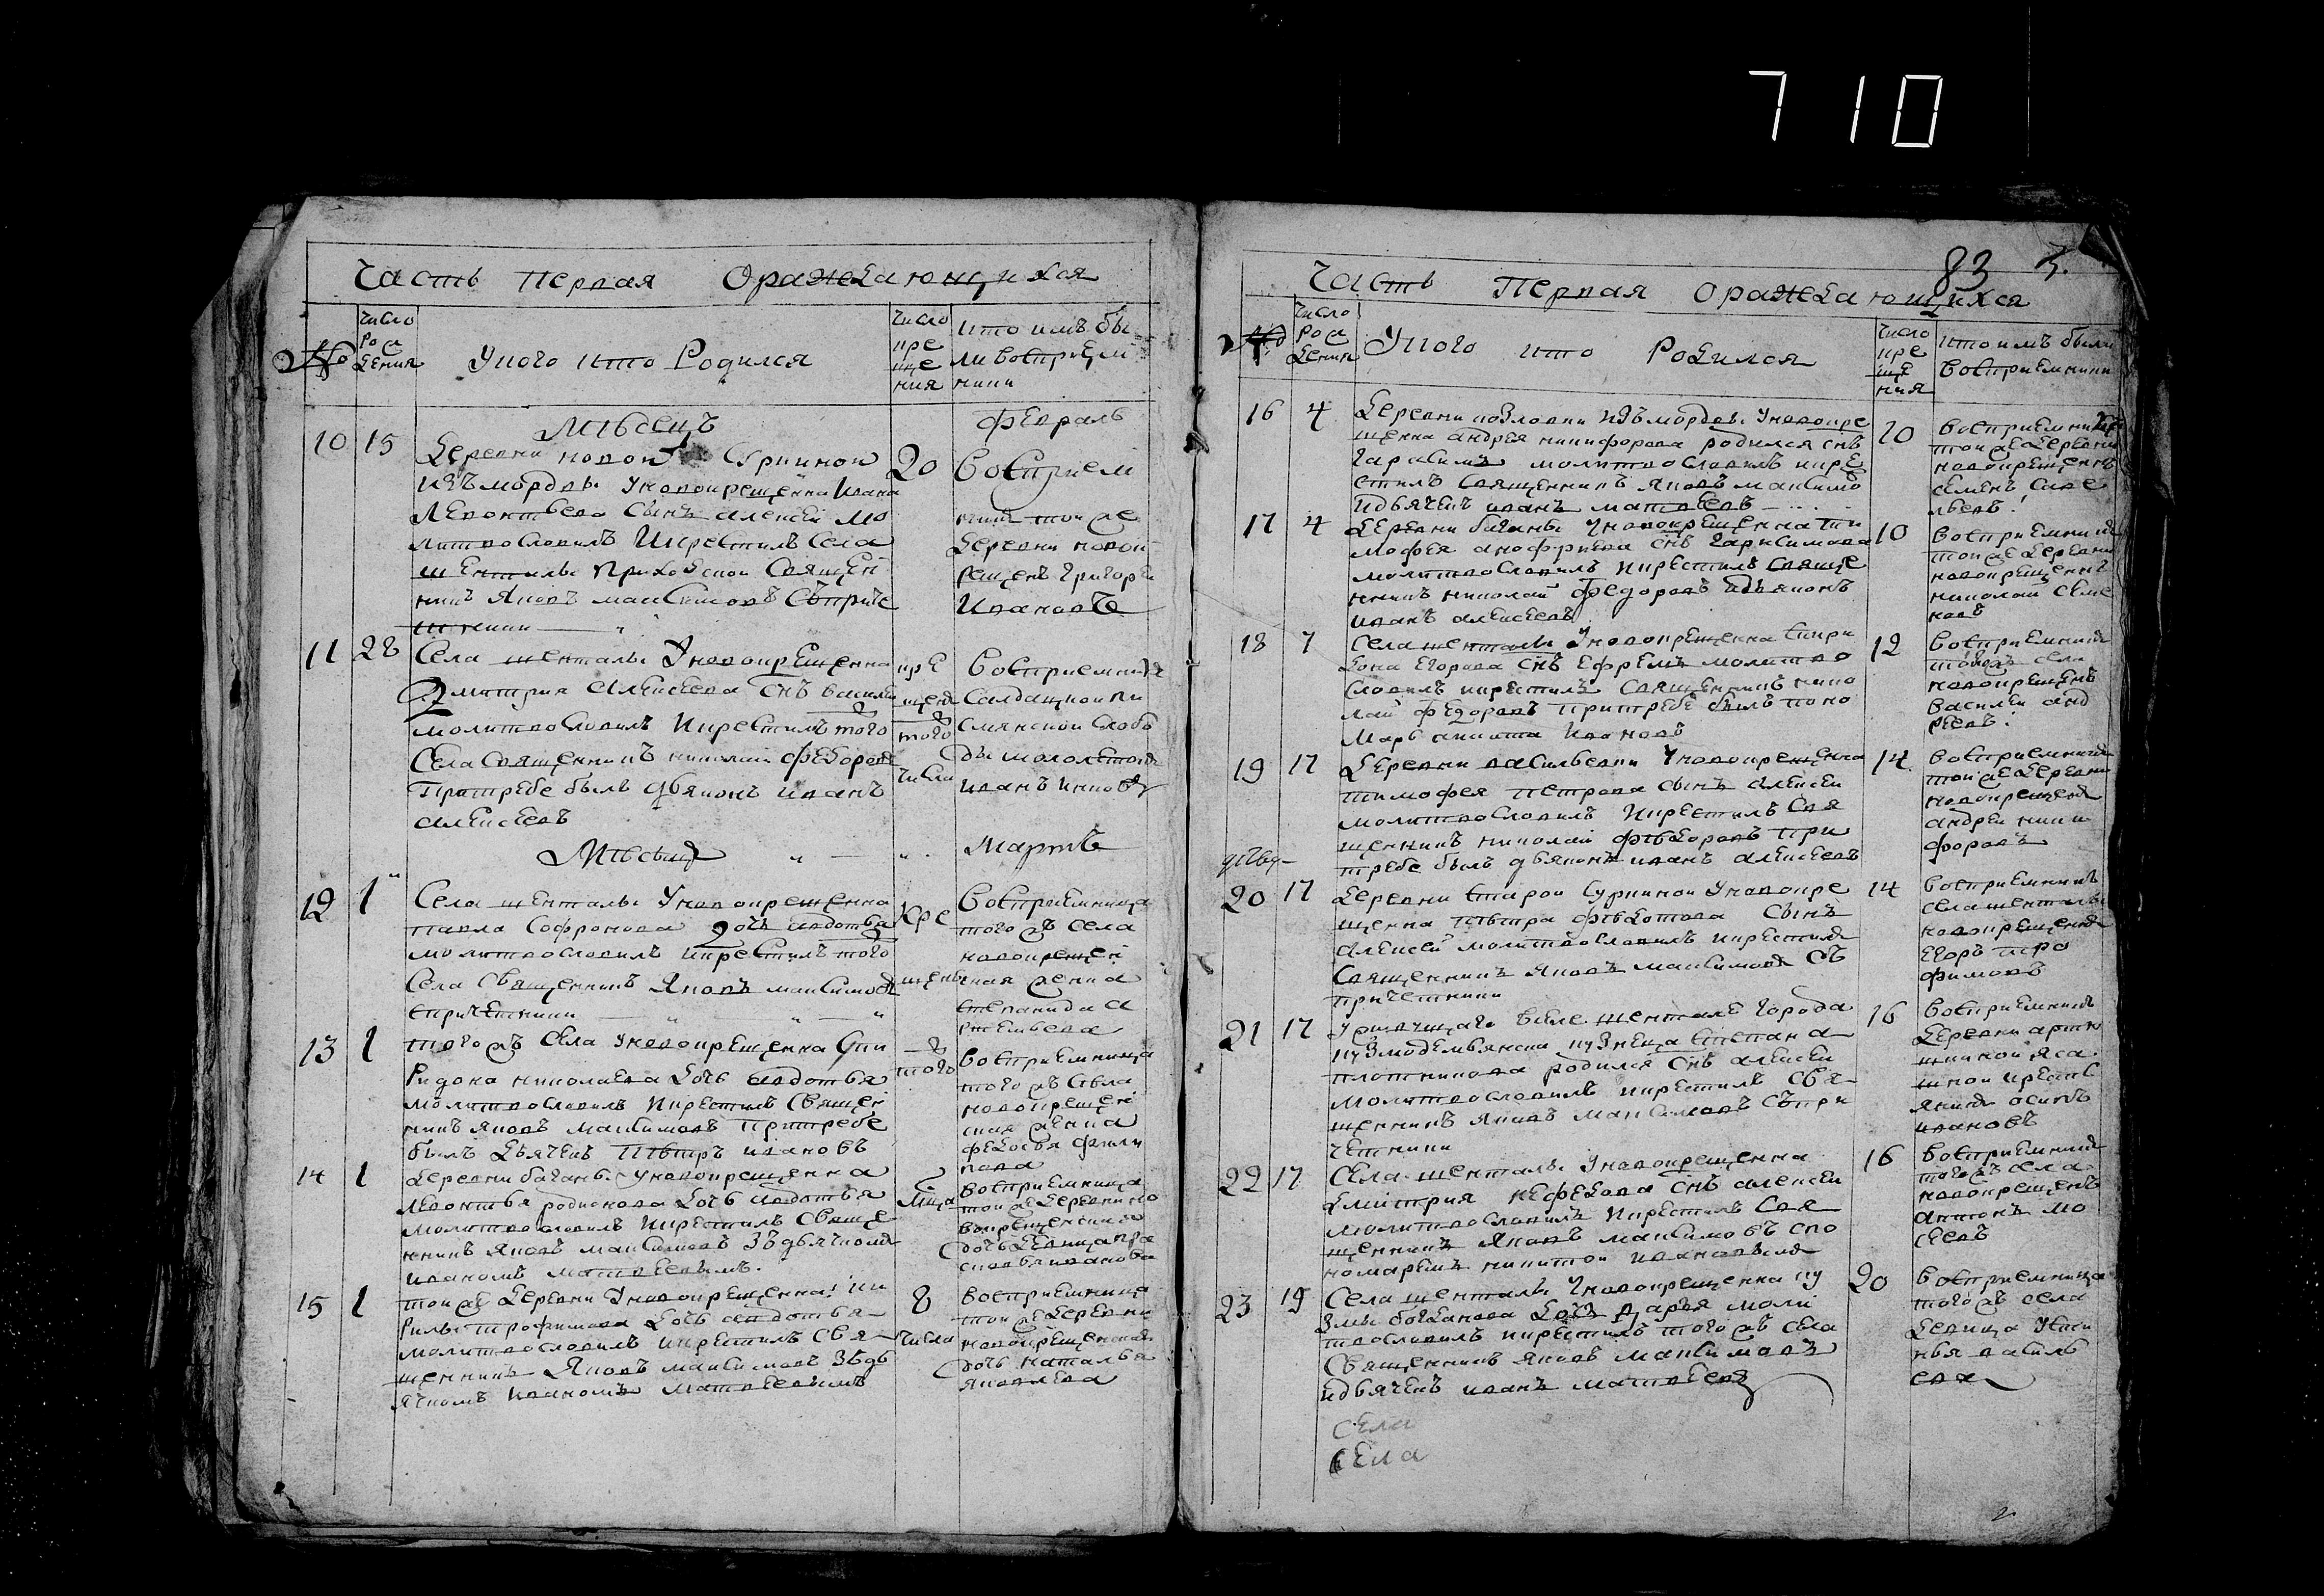 710
Часть первая О раждающихся
№
число рождения
У кого кто Родился
число крещения
кто имъ были воспріемники
Мѣсецъ Февраль
10 15
Деревни новой Суркиной
изъ мордвы У новокрещенна Ивана
Леонтьева сынъ алексей мо
литвословилъ И крестилъ села
шенталы приходской священ
никъ Яковъ максимовъ съ приче
тники
20
Воспріем
никъ той же
деревни новок
рещенъ григорей
Ивановъ
11 28
Села шенталы У новокрещенна
Дмитрия алексеева снъ василей
молитвословилъ И крестилъ того
села священникъ николай федоровъ
При требе былъ дьяконъ иванъ
алексеевъ
кре
щенъ
того
числа
Воспріемникъ
салдацкой
слобо
ды малолетокъ
иванъ
Мѣсецъ Мартъ
12 1
Села шенталы У новокрещенна
павла Софронова дочь авдотья
молитвословилъ и крестилъ того
села священникъ Яковъ максимовъ
с причетники
кре
щены
Воспріемница
того жъ села
новокрещен
ная женка
степанида а
ртемьева
13 1
того жъ села У новокрещенна Спи
ридона николаева дочь авдотья
молитвословилъ И крестилъ священ
никъ яковъ максимовъ при требе
былъ дьячекъ Пѣтръ ивановъ
того
воспріемница
того жъ села
новокрещен
ская женка
федосья фили
пова
14 1
деревни баганы У новокрещенна
леонтья родионова дочь авдотья
молитвословилъ и крестилъ свяще
нникъ яковъ максимовъ з дьячкомъ
иваномъ матвеевымъ.
мца
воспріемница
той же деревни но
вокрещенская
дочь девица пра
сковья иванова
15 1
той же деревни У новокрещенна ки
рилы трофимова дочь авдотья
молитвословилъ и крестилъ свя
щенникъ Яковъ максимовъ з дь
ячкомъ иваномъ матвеевымъ
8
числа
воспріемница
той же деревни
новокрещенская
дочь наталья
яковлева
83
Часть Первая О раждающихся
№
число рождения
У кого кто Родился
число крещения
кто имъ были воспріемники
16 4
деревни козловки изъ мордвы У новокре
щенна андрея никифорова родился снъ
гарасимъ молитвословилъ и кре
стилъ священникъ яковъ максимо
и дьячекъ иванъ матвеевъ
10
воспріемникъ
той же деревни
новокрещенъ
семенъ саве
льевъ
17 4
деревни баганы У новокрещенна ти
мофея анофриева снъ гарасимова
молитвословилъ и крестилъ свяще
нникъ николай федоровъ и дьяконъ
иванъ алексеевъ
10
воспріемникъ
той же деревни
новокрещенъ
николай семе
новъ
18 7
села шенталы У новокрещенна спири
дона егорова снъ ефремъ молитво
словилъ и крестилъ священникъ нико
лай федоровъ при требе былъ поно
марь никита ивановъ
12
воспріемникъ
того жъ села
новокрещенъ
василей анд
реевъ
19 17
деревни васильевки У новокрещенна
тимофея петрова сынъ алексей
молитвословилъ И крестилъ свя
щенникъ николай фѣдоровъ при
требе былъ дьяконъ иванъ алексеевъ
14
воспріемникъ
той же деревни
новокрещенъ
андрей ники
форовъ
20 17
деревни старой суркиной У новокре
щенна пѣтра фѣдотова сынъ
алексей молитвословилъ и крестилъ
священникъ яковъ максимовъ съ
причетники
14
воспріемникъ
села шенталы
новокрещенъ
егоръ тро
фимовъ
21 17
У живущаго в селе шентале города
кузмодемьянска кузнеца степана
плотникова родился снъ алексей
молитвословилъ и крестилъ свя
щенникъ яковъ максимовъ съ при
четники
16
воспріемникъ
деревни артю
шкиной яса
шной кресть
янинъ осипъ
ивановъ
22 17
села шенталы У новокрещенна
дмитрия нефедова снъ алексей
молитвословилъ и крестилъ свя
щенникъ яковъ максимовъ с по
номаремъ никитой ивановымъ
16
воспріемникъ
того жъ села
новокрещенъ
антонъ мо
сеевъ
23 19
Села шенталы У новокрещенна ку
змы богданова дочь дарья моли
твословилъ и крестилъ того жъ села
священникъ яковъ максимовъ
и дьячекъ иванъ матвеевъ
20
воспріемница
того жъ села
девица усти
нья василь
ева
села
села